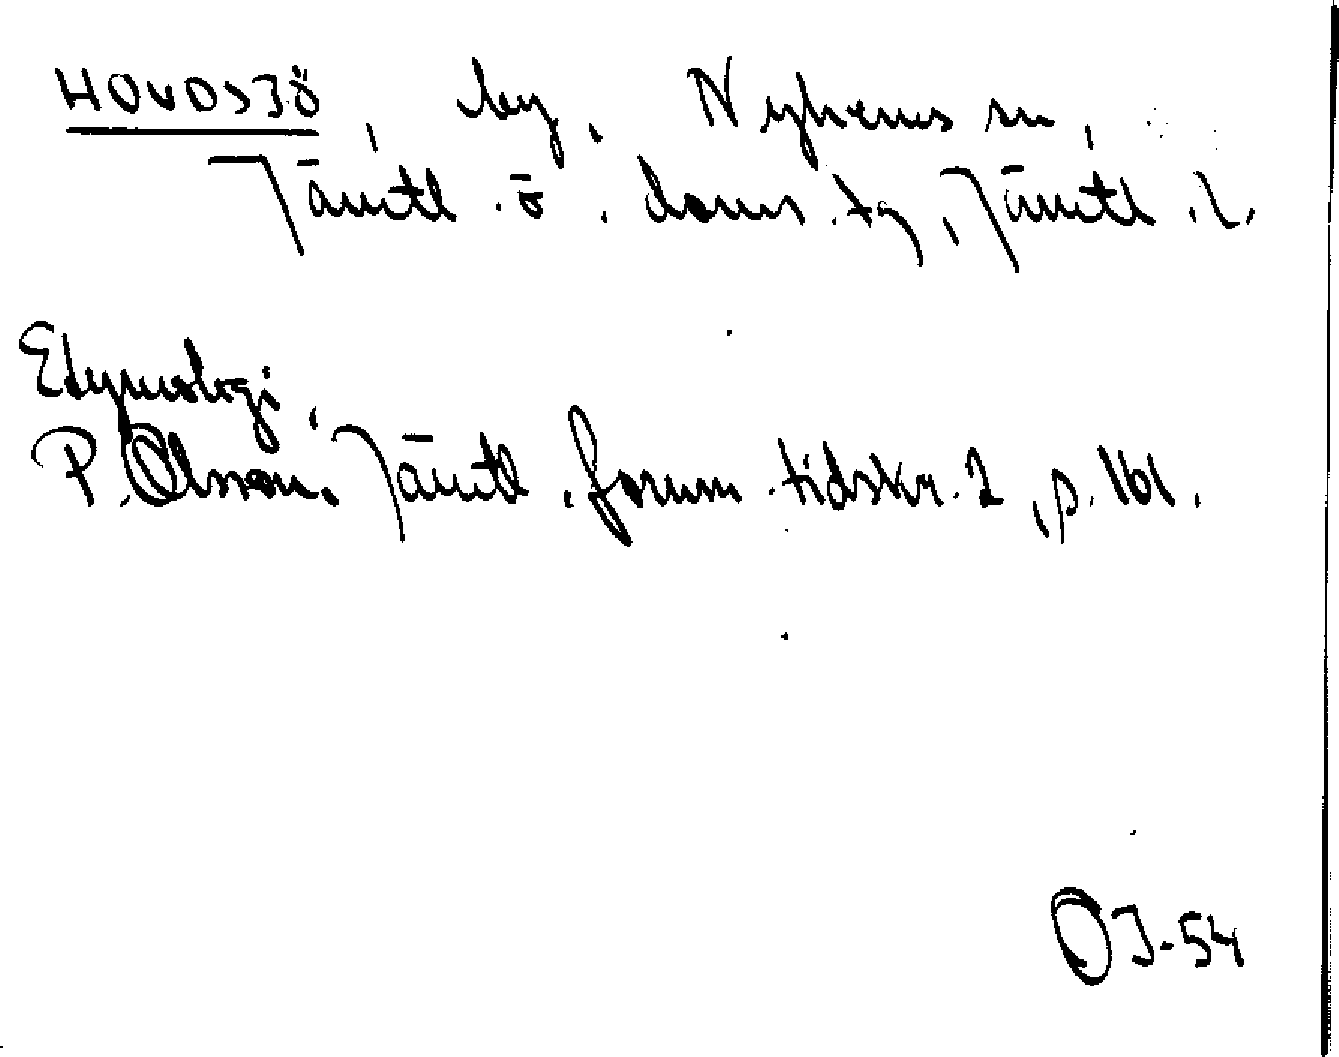 HOVDSJÖ, by, Nyhems sn,
Jämtl. ö. doms. tg, Jämtl. l.
Etymologi,
P. Olsson. Jämtl. fornm. tidskr. 2, p. 161.
OJ-54